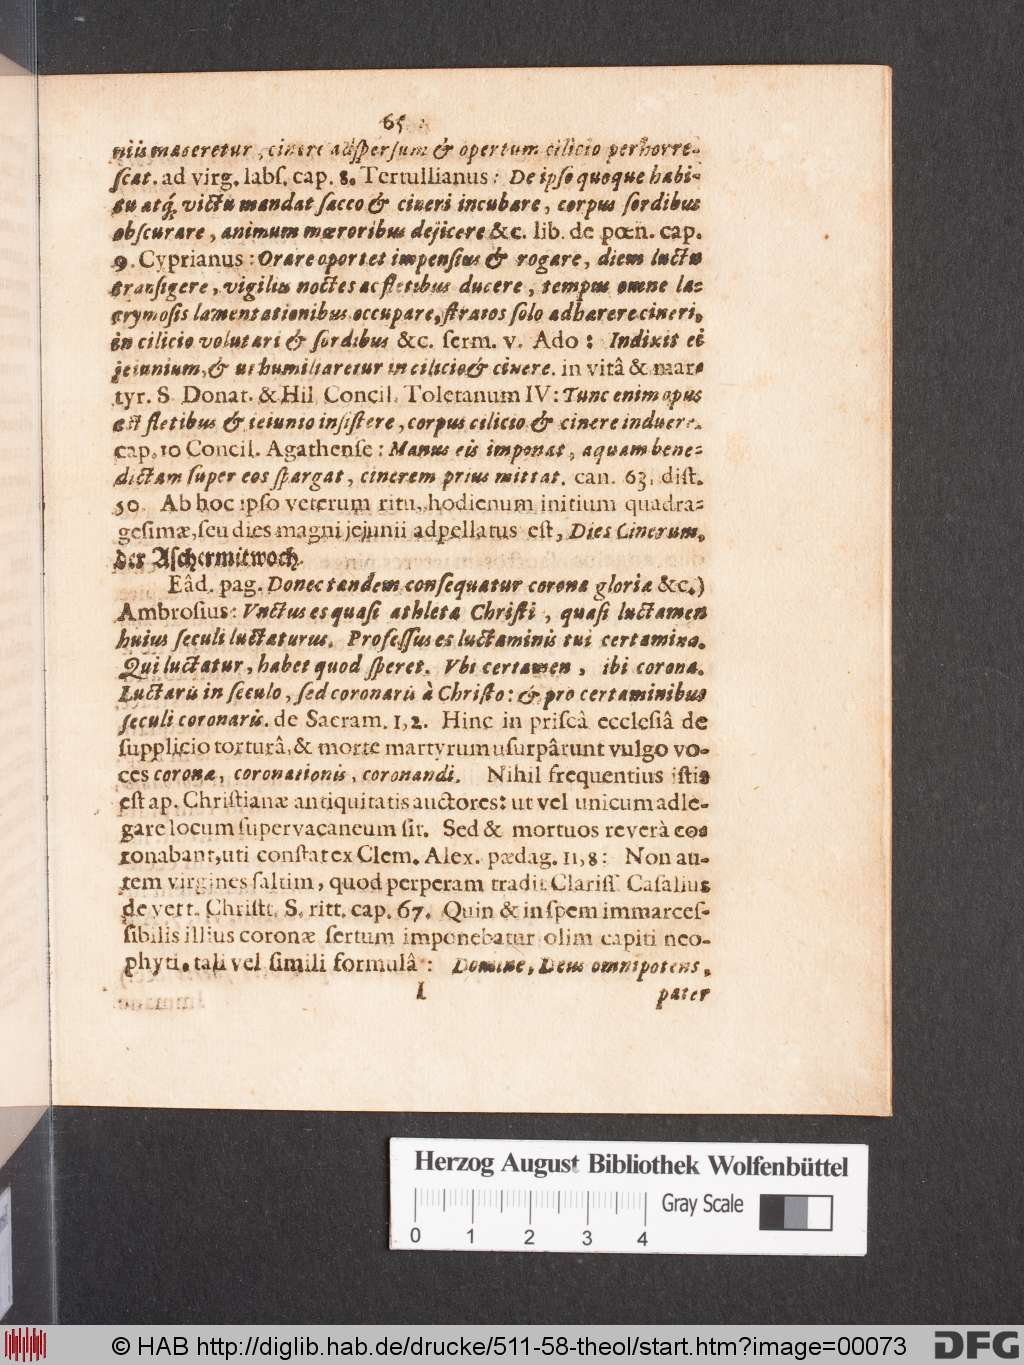 65
niis maseretur, cinere adſperſum & opertum cilicio perhorre-
ſcat. ad virg. labſ. cap. 8. Tertullianus: De ipſo quoque habi-
tu atq; victu mandat ſacco & cineri incubare, corpus ſordibus
obſcurare, animum mœroribus dejicere &c. lib. de pœn. cap.
9. Cyprianus: Orare oportet impenſius & rogare, diem luctu
tranſigere, vigiliis noctes ac fletibus ducere, tempus omne la-
crymoſis lamentationibus occupare, ſtratos ſolo adhærere cineri,
in cilicio volutari & ſordibus &c. ſerm. v. Ado: Indixit ei
jejunium, & ut humiliaretur in cilicio & cinere. in vitâ & mar-
tyr. S Donat. & Hil Concil. Toletanum IV: Tunc enim opus
est fletibus & jejunio inſiſtere, corpus cilicio & cinere induere.
cap. 10 Concil. Agathenſe: Manus eis imponat, aquam bene-
dictam ſuper eos ſpargat, cinerem prius mittat. can. 63. diſt.
50. Ab hoc ipſo veterum ritu, hodienum initium quadra-
geſimæ, ſeu dies magni jejunii adpellatus eſt, Dies Cinerum,
der Aſchermitwoch.
Eâd. pag. Donec tandem conſequatur corona gloriæ &c.)
Ambroſius: Vnctus es quaſi athleta Chriſti, quaſi luctamen
huius ſeculi luctaturus. Profeſſus es luctaminis tui certamina.
Qui luctatur, habet quod ſperet. Vbi certamen, ibi corona.
Luctaris in ſeculo, ſed coronaris à Chriſto: & pro certaminibus
ſeculi coronaris. de Sacram. 1,2. Hinc in priſcâ eccleſiâ de
ſupplicio torturâ, & morte martyrum uſurpârunt vulgo vo-
ces coronæ, coronationis, coronandi. Nihil frequentius iſtis
eſt ap. Chriſtianæ antiquitatis auctores: ut vel unicum adle-
gare locum ſupervacaneum ſit. Sed & mortuos reverà co-
ronabant, uti conſtat ex Clem. Alex. pædag. 11,8: Non au-
tem virgines ſaltim, quod perperam tradit Clariſſ. Caſalius
de vett. Chriſtt. S. ritt. cap. 67. Quin & in ſpem immarceſ-
ſibilis illius coronæ ſertum imponebatur olim capiti neo-
phyti, tali vel ſimili formulâ: Domine, Deus omnipotens,
I pater
Herzog August Bibliothek Wolfenbüttel
Gray Scale
0 1 2 3 4
© HAB http://diglib.hab.de/drucke/511-58-theol/start.htm?image=00073
DFG